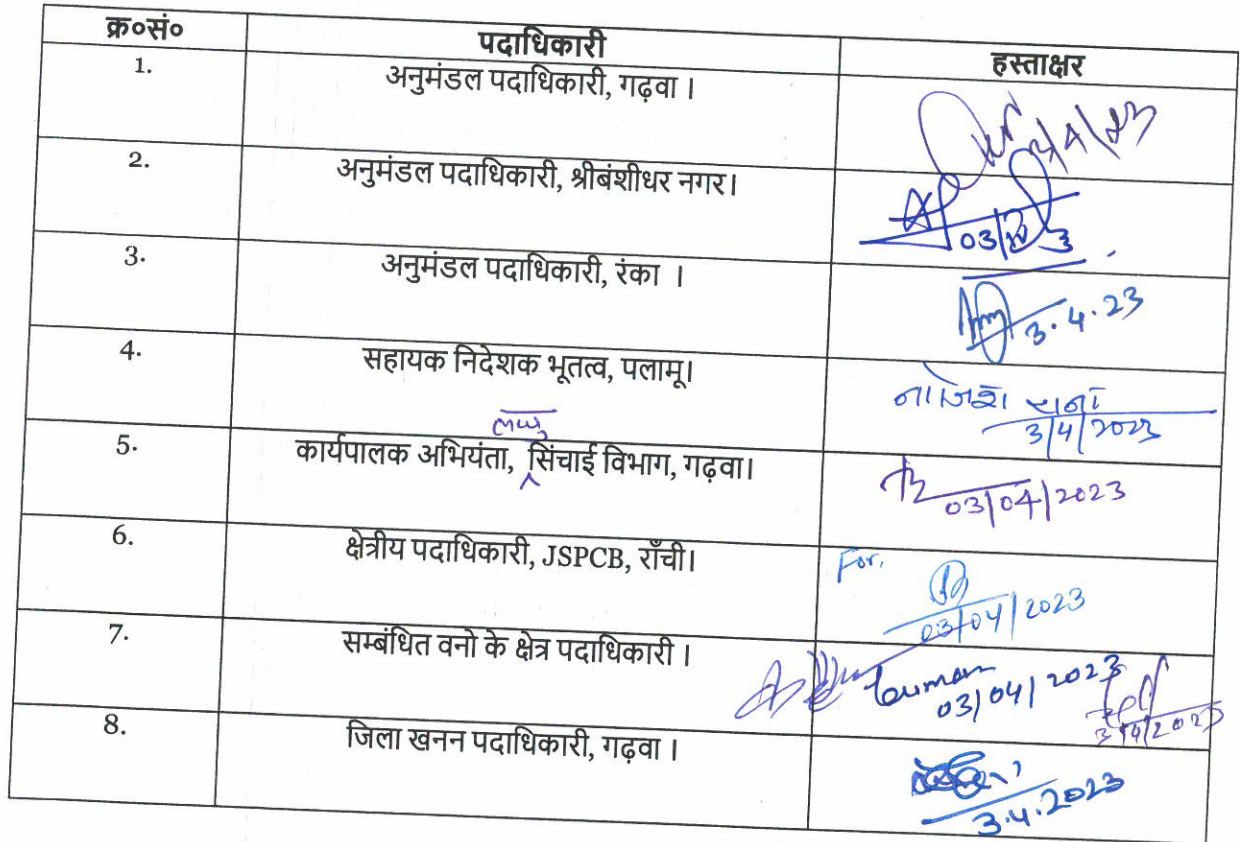 क्र०सं० पदाधिकारी हस्ताक्षर
1. अनुमंडल पदाधिकारी, गढ़वा । 3/4/23
2. अनुमंडल पदाधिकारी, श्रीबंशीधर नगर।
3. अनुमंडल पदाधिकारी, रंका । 3.4.23
4. सहायक निदेशक भूतत्व, पलामू। नाजिश राना
3/4/2023
लघु
5. कार्यपालक अभियंता, सिंचाई विभाग, गढ़वा। 03/04/2023
6. क्षेत्रीय पदाधिकारी, JSPCB, राँची। For,
03/04/2023
7. सम्बंधित वनो के क्षेत्र पदाधिकारी । 03/04/2023 3/4/2023
8. जिला खनन पदाधिकारी, गढ़वा ।
3.4.2023